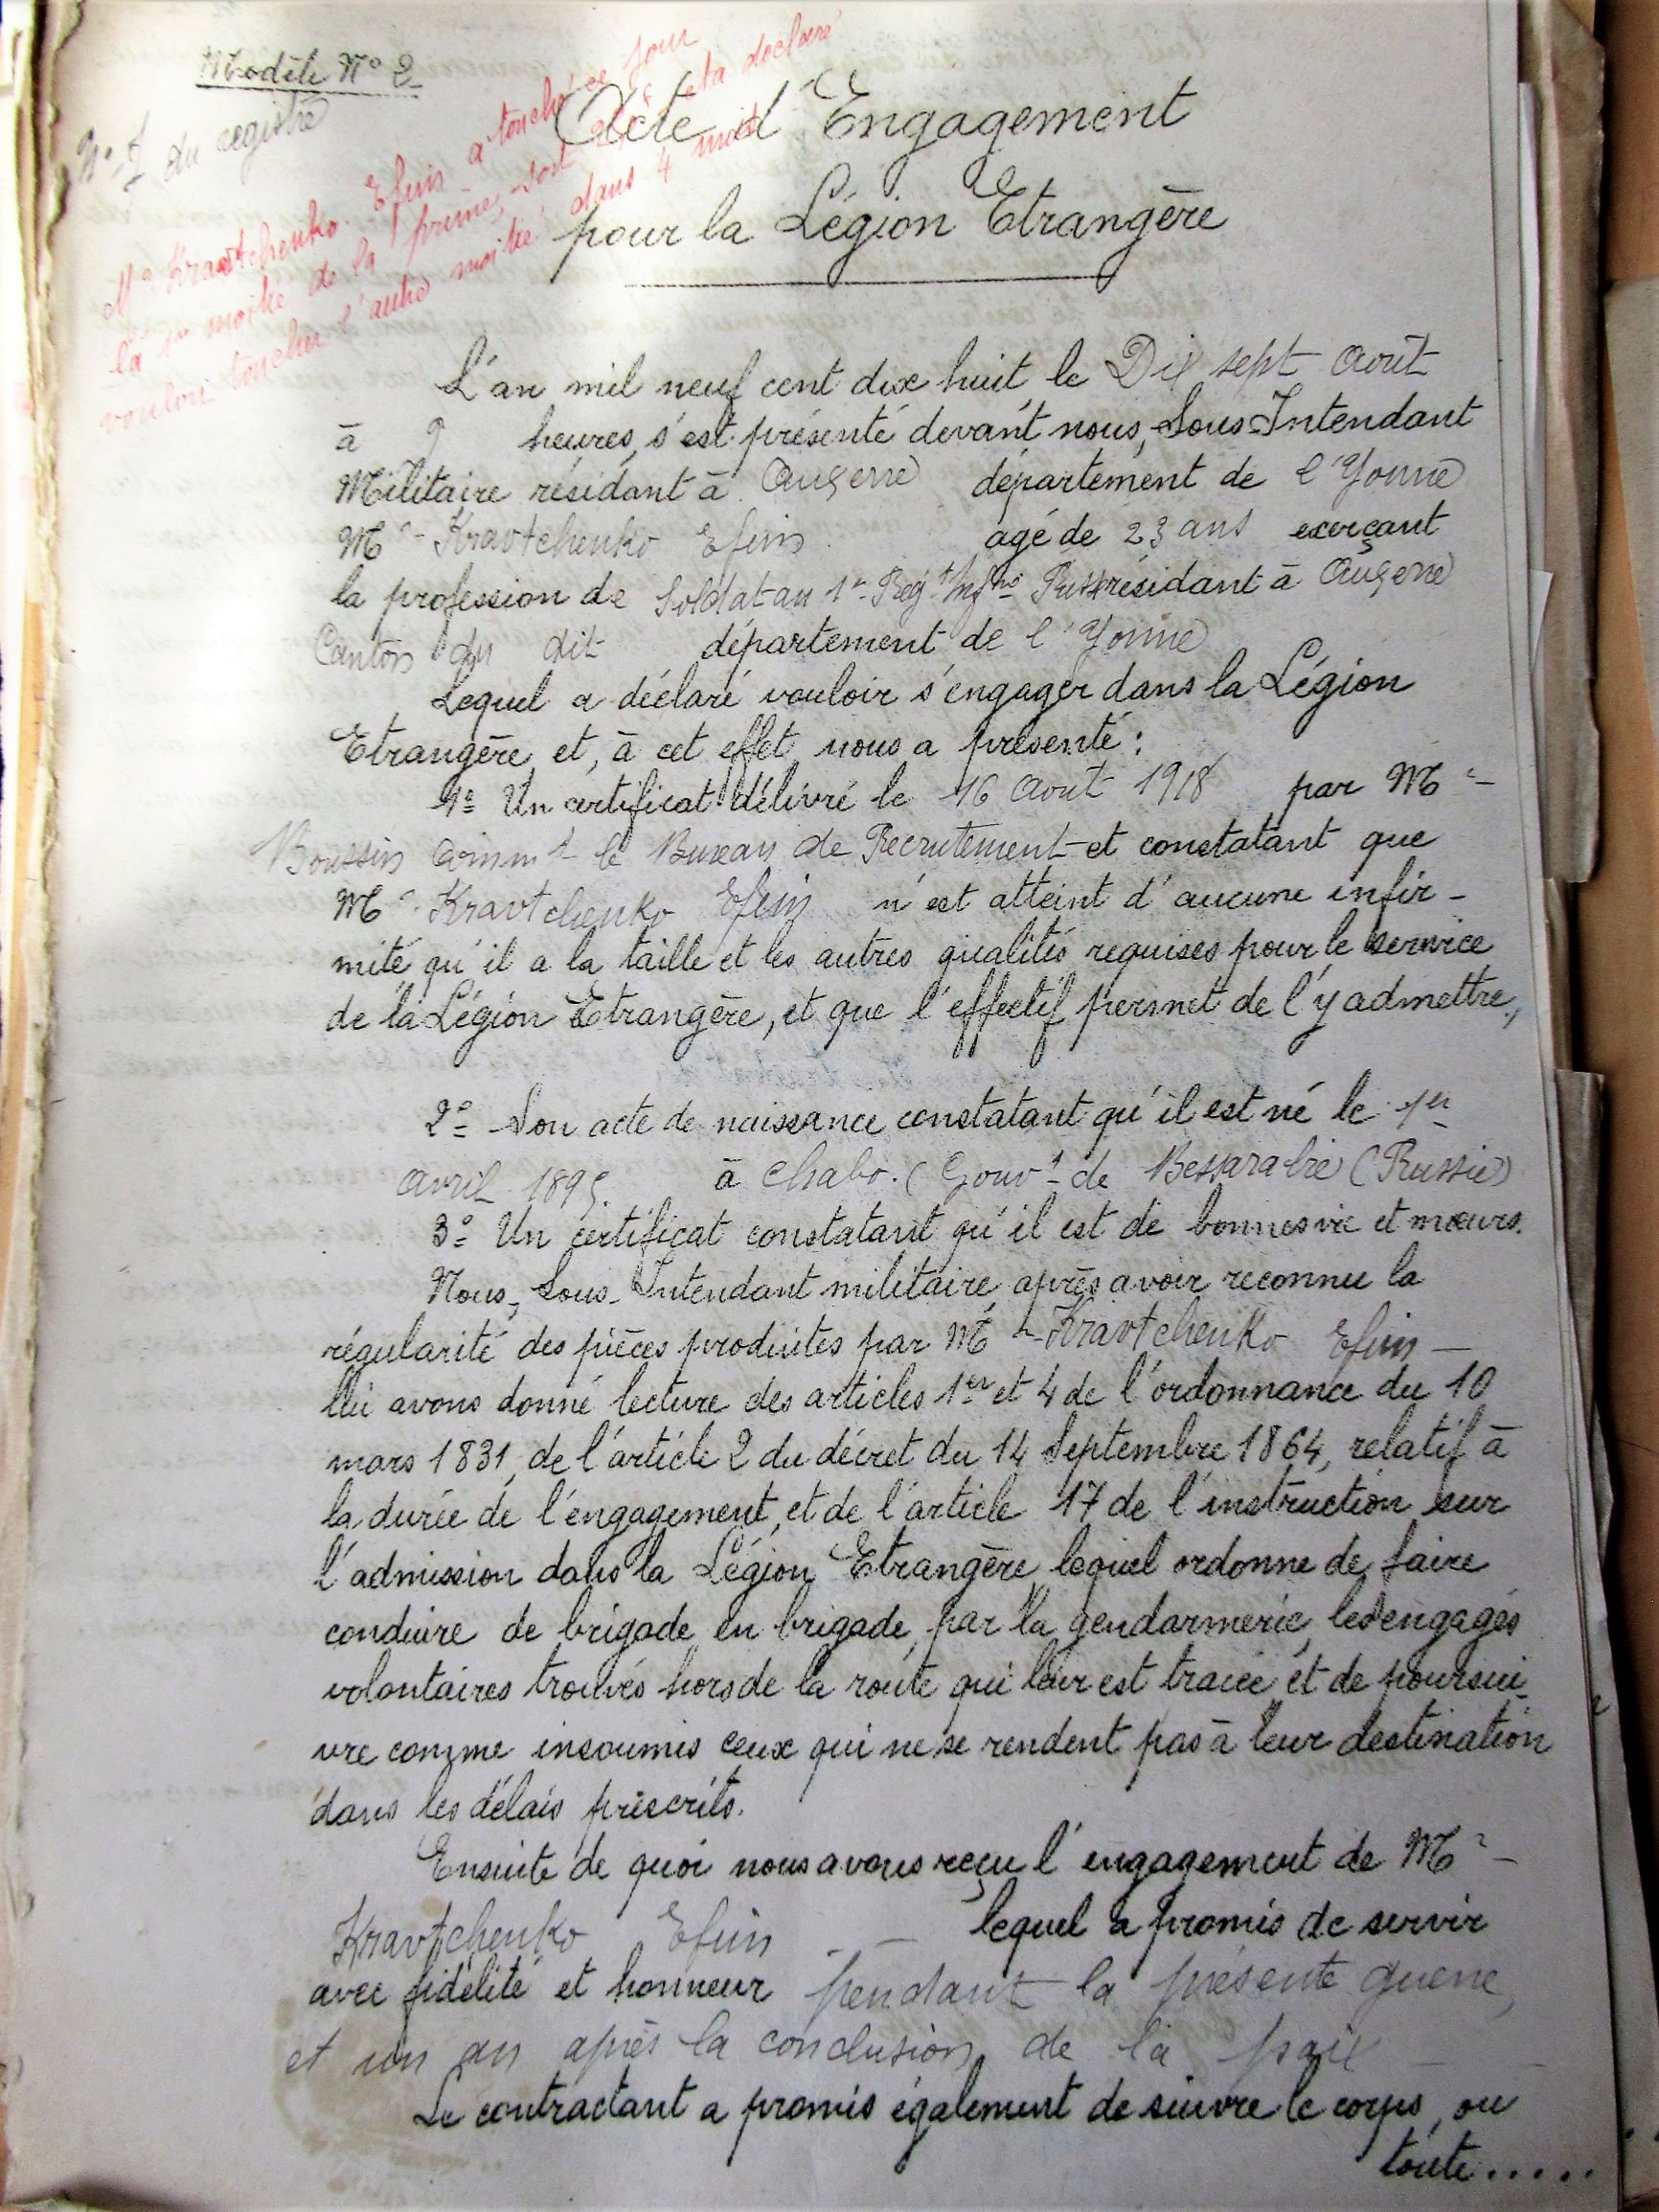 Modèle N° 2
N° du registre
Mr Kravtchenko Efim a touché ce jour
la 1re moitié de la prime, soit et a déclaré
vouloir toucher l'autre moitié dans 4 mois
Acte d'Engagement
pour la Légion Etrangère
L'an mil neuf cent dix huit, le Dix sept Août
à 9 heures, s'est présenté devant nous, Sous-Intendant
Militaire résidant à Auxerre département de l'Yonne
Mr Kravtchenko Efim agé de 23 ans exerçant
la profession de Soldat au 1er Régt Infrie Russe résidant à Auxerre
Canton du dit département de l'Yonne
Lequel a déclaré vouloir s'engager dans la Légion
Etrangère et, à cet effet nous a présenté :
1° Un certificat délivré le 16 Août 1918 par Mr
Boussin Commt le Bureau de Recrutement et constatant que
Mr Kravtchenko Efim n'est atteint d'aucune infir-
mité, qu'il a la taille et les autres qualités requises pour le service
de la Légion Etrangère, et que l'effectif permet de l'y admettre,
2° Son acte de naissance constatant qu'il est né le 1er
avril 1895 à Chabo. (Gouvt de Bessarabie (Russie)
3° Un certificat constatant qu'il est de bonnes vie et mœurs.
Nous, Sous-Intendant militaire, après avoir reconnu la
régularité des pièces produites par Mr Kravtchenko Efim —
lui avons donné lecture des articles 1er et 4 de l'ordonnance du 10
mars 1831, de l'article 2 du décret du 14 Septembre 1864, relatif à
la durée de l'engagement, et de l'article 17 de l'instruction sur
l'admission dans la Légion Etrangère, lequel ordonne de faire
conduire de brigade en brigade, par la gendarmerie, les engagés
volontaires trouvés hors de la route qui leur est tracée et de poursui-
vre comme insoumis ceux qui ne se rendent pas à leur destination
dans les délais prescrits.
Ensuite de quoi nous avons reçu l'engagement de Mr
Kravtchenko Efim — lequel a promis de servir
avec fidélité et honneur pendant la présente guerre,
et un an après la conclusion de la paix —
Le contractant a promis également de suivre le corps, ou
toute.....